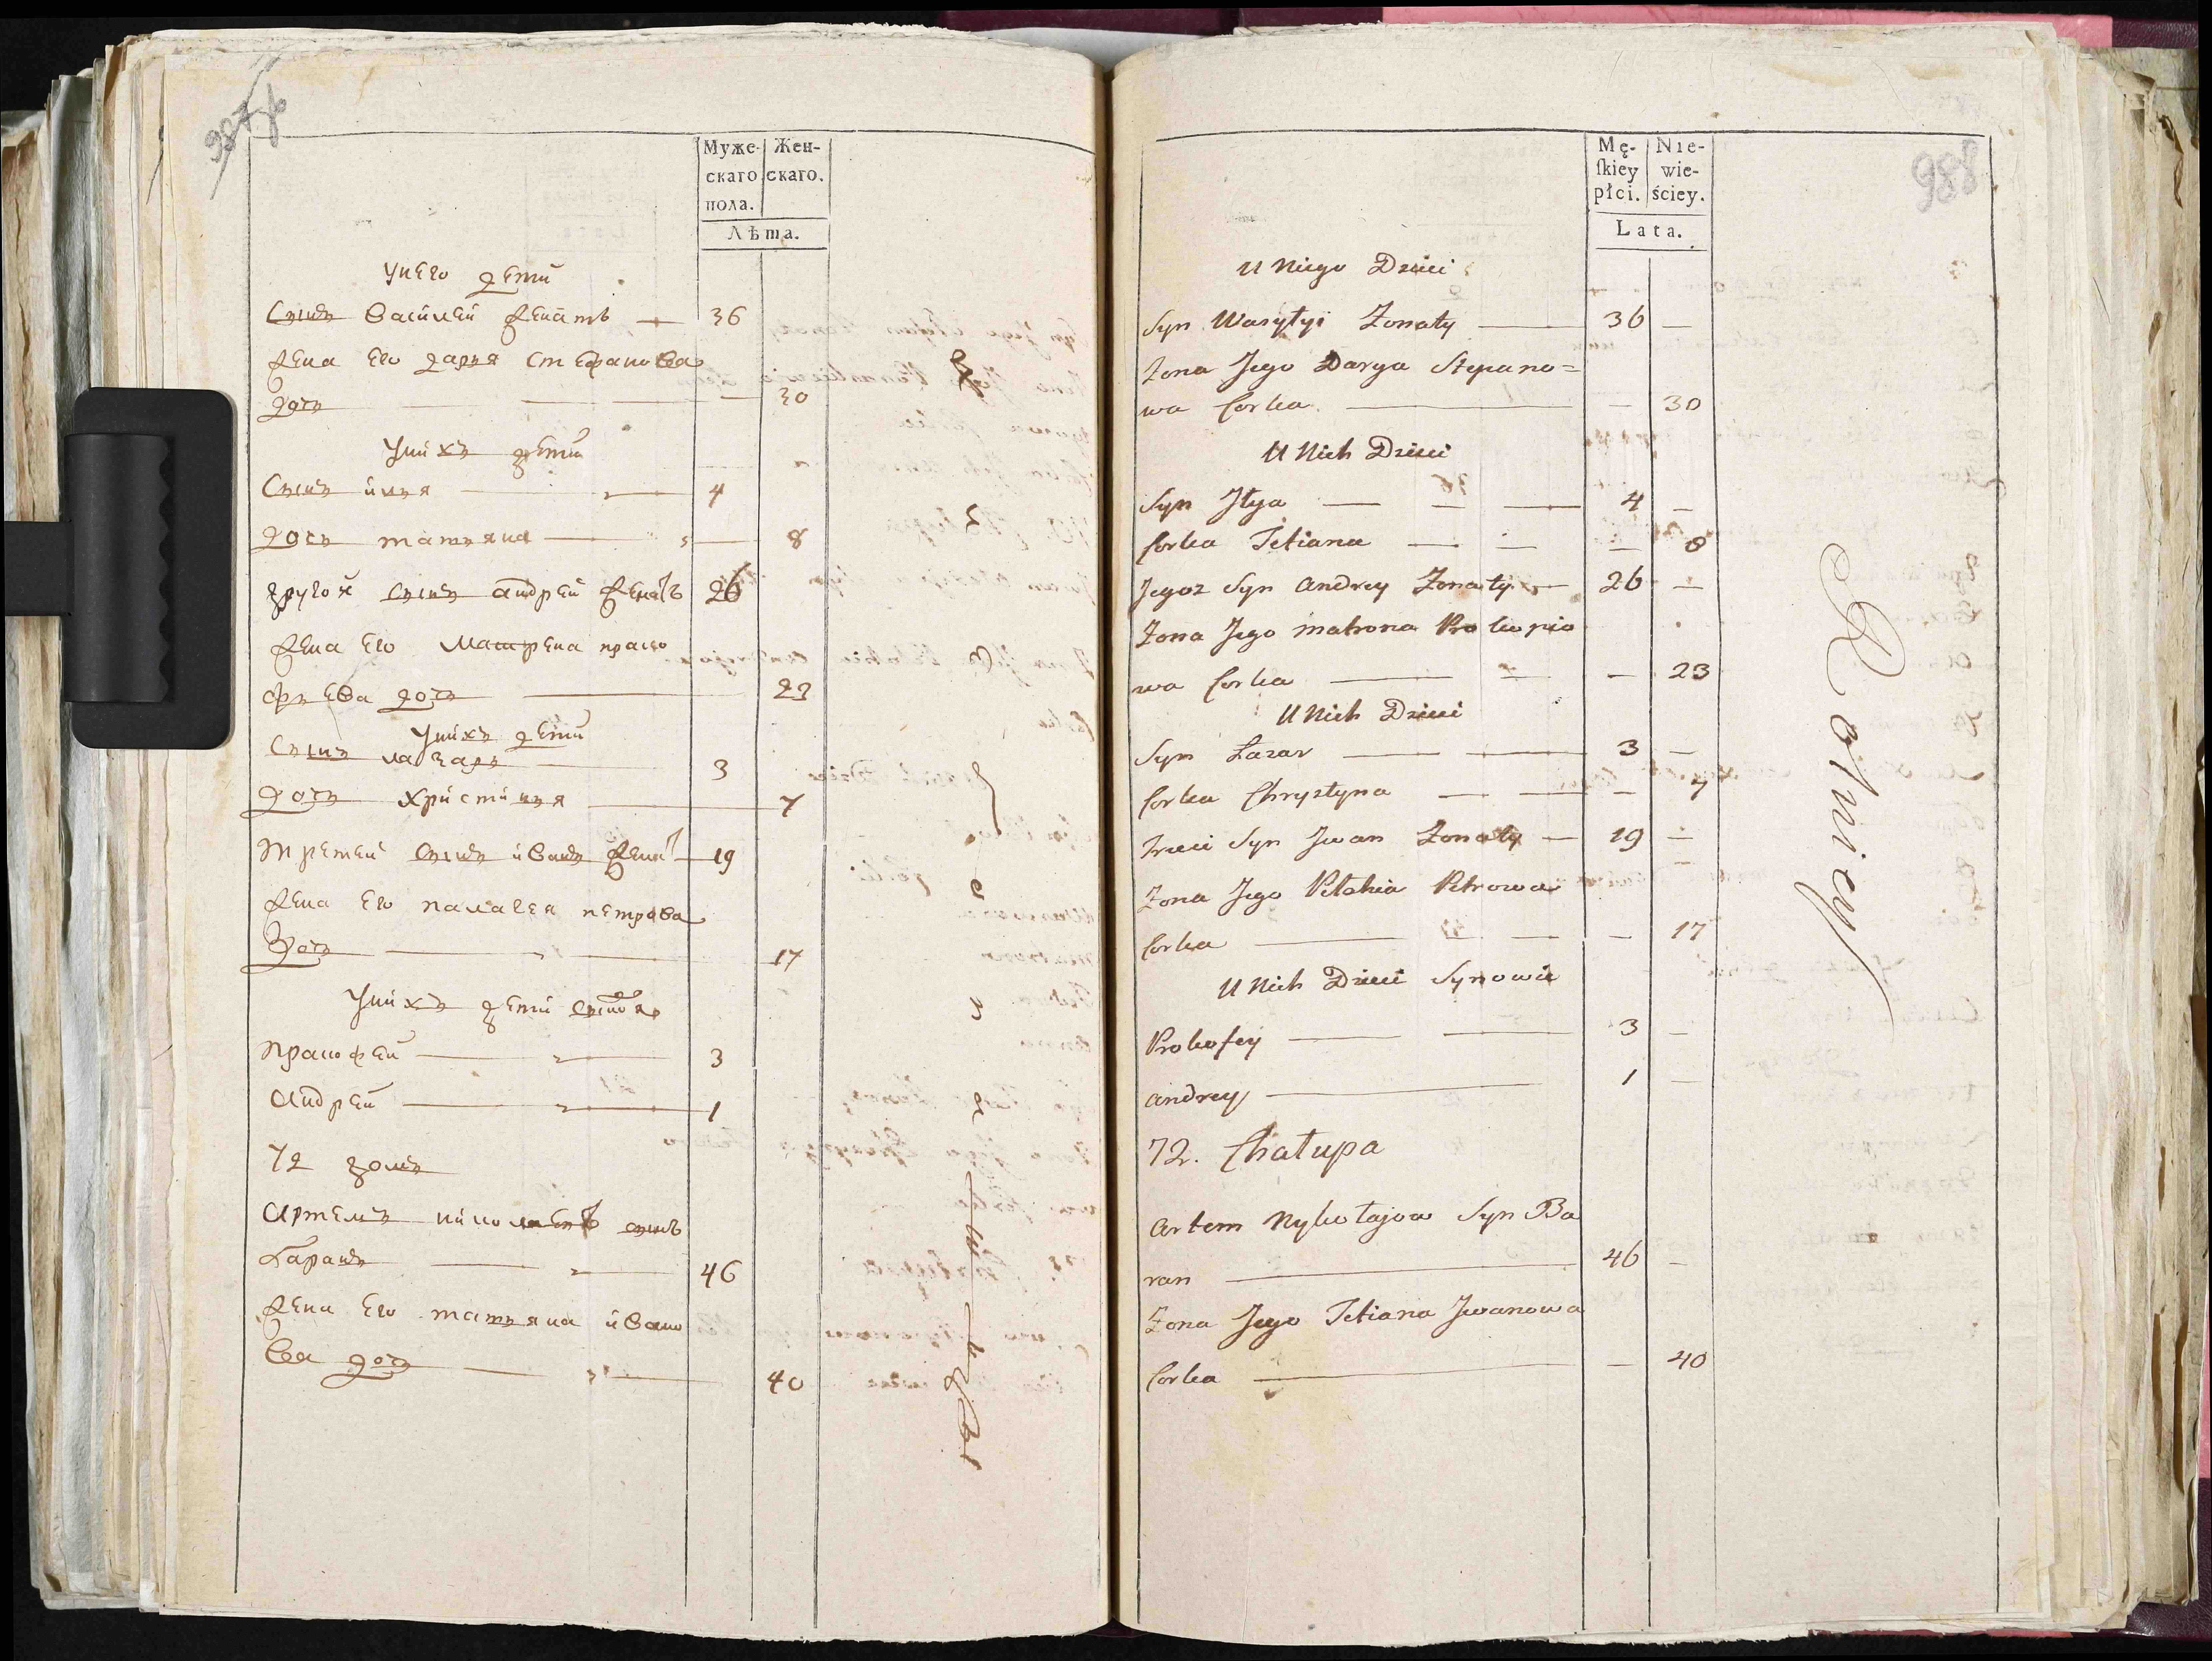 Муже-
скаго
пола.
Жен-
скаго.
Лѣта.
Унего дети
Сынъ Василей женатъ 36
жена Его дарья степанова
дочь 30
Унихъ дети
Сынъ илья 4
дочь татьяна 8
другой сынъ андрей женатъ 26
жена Его матрена проко
фьева дочь 23
Унихъ дети
Сынъ лазарь 3
дочь христинья 7
третей сынъ иванъ женат 19
жена Его палагея петрова
дочь 17
Унихъ дети
прокофей 3
андрей 1
72 домъ
артемъ николаевъ сынъ
баранъ 46
жена Его татьяна ивано
ва дочь 40
988
Mę-
ſkiey
płci.
Nie-
wie-
ściey.
Lata.
U Niego Dzieci
Syn Wasyłyi Żonaty — 36 —
Żona Jego Darya Stepano=
wa Corka — — 30
U Nich Dzieci
Syn Jłya — 4 —
Corka Tetiana — — 8
Jegoz Syn Andrey Żonaty — 26 —
Żona Jego Matrona Prokopio
wa Corka — — 23
U Nich Dzieci
Syn Łazar — 3 —
Corka Chrystyna — — 7
trzeci Syn Jwan Żonaty — 19 —
Żona Jego Pełahia Petrowa
Corka — — 17
U Nich Dzieci Synowie
Prokofey — 3 —
Andrey — 1 —
72. Chałupa
Artem Nykołajow Syn Ba
ran — 46 —
Żona Jego Tetiana Jwanowa
Corka — — 40
Rolnicy